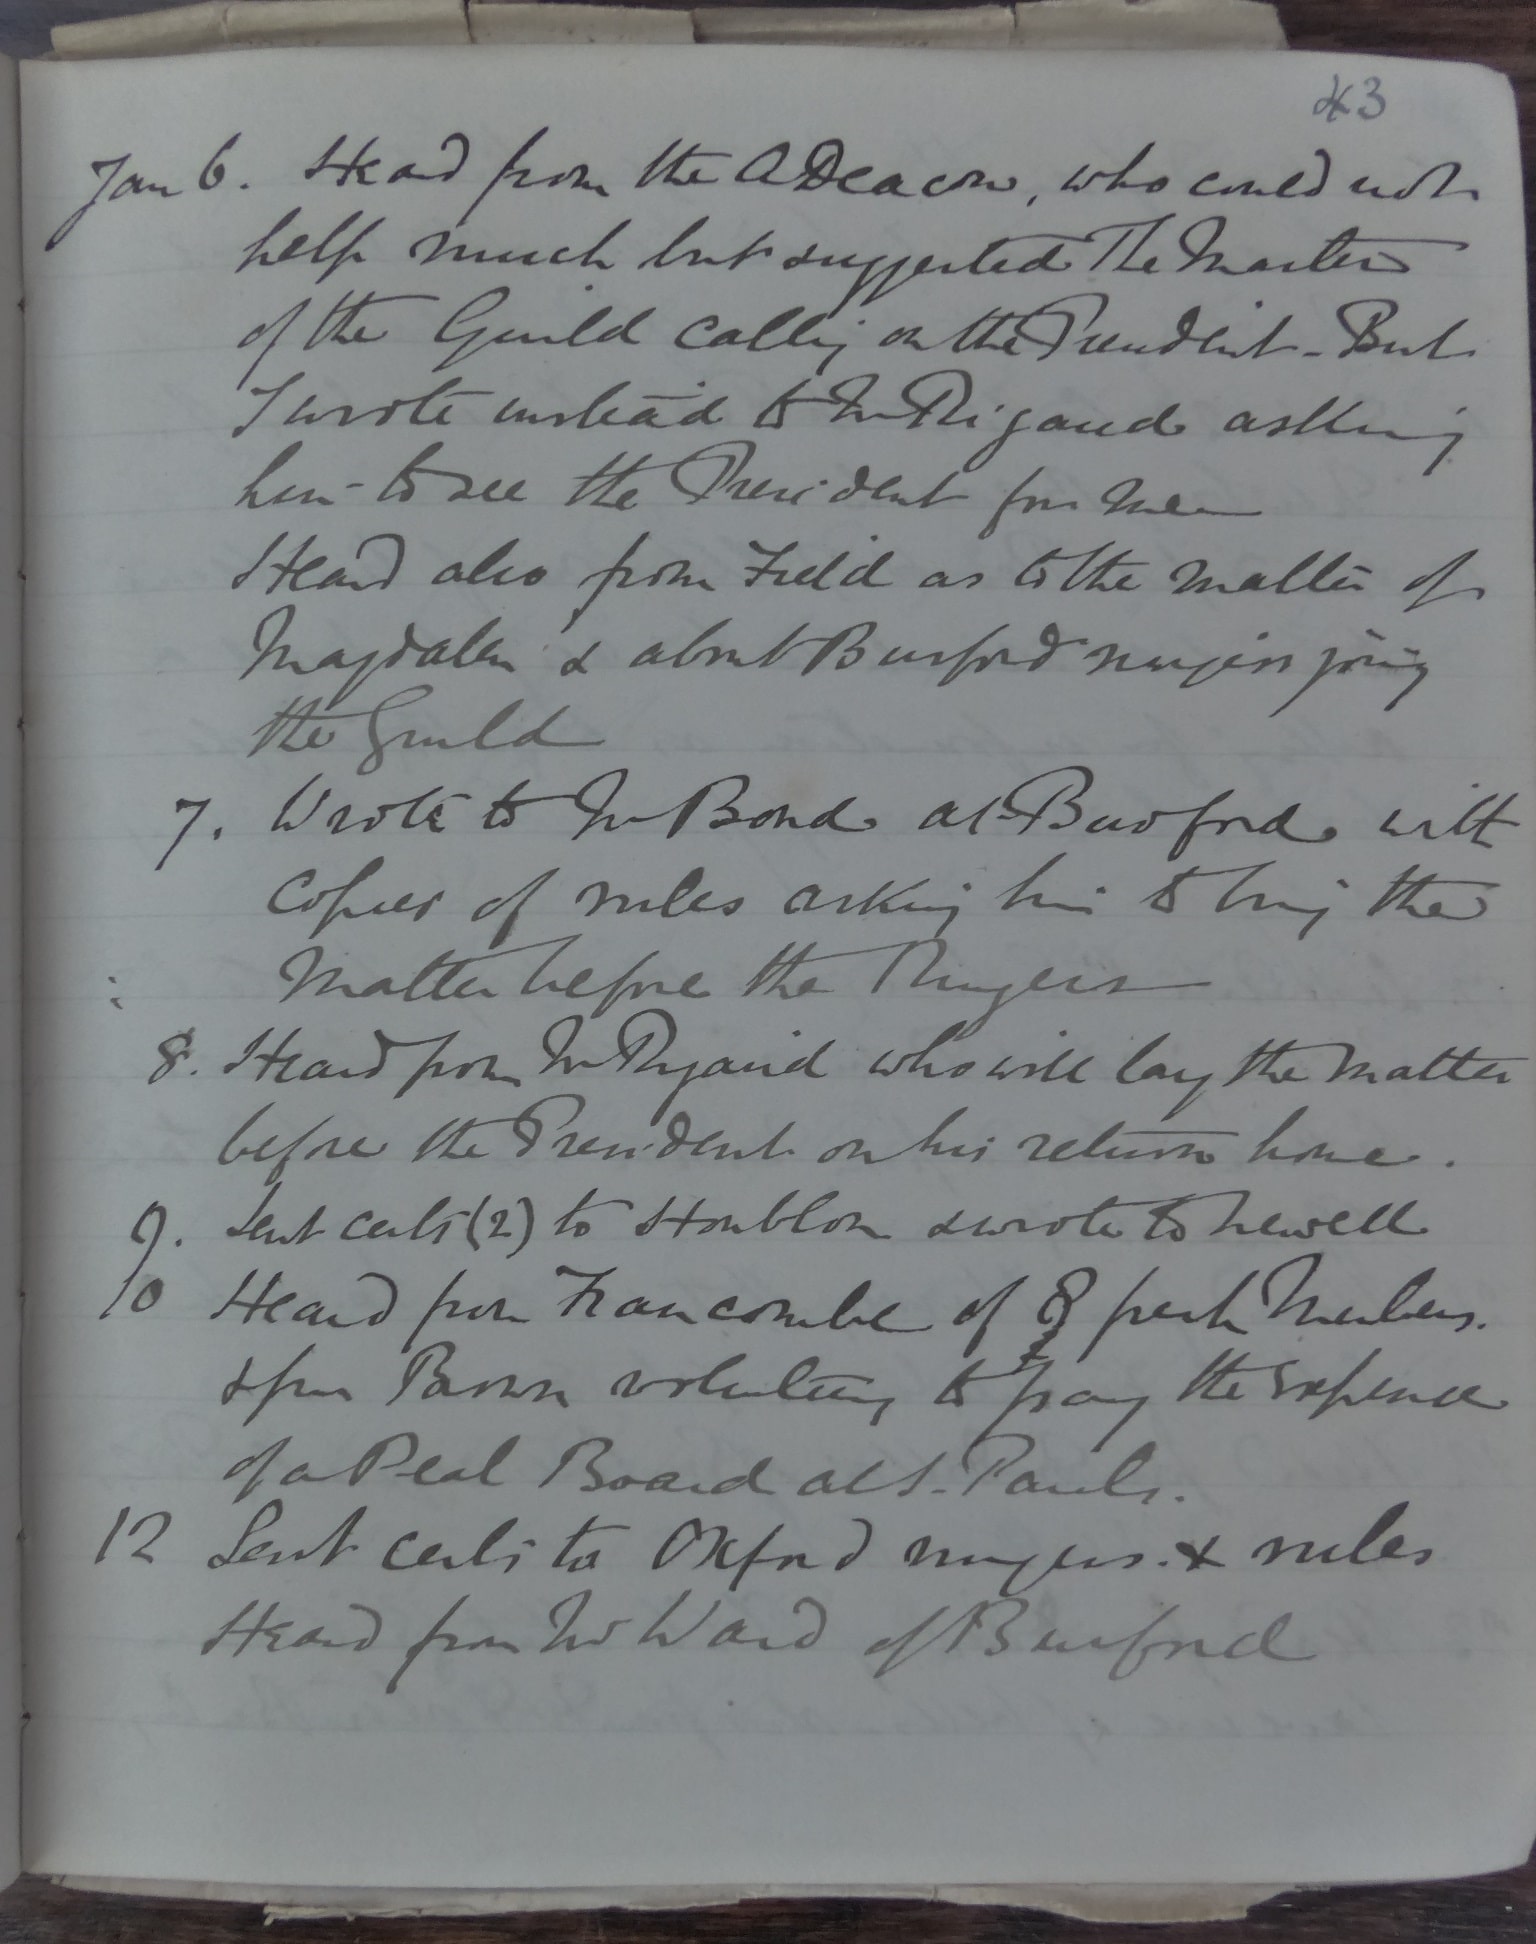 43
Jan 6. Heard from the ADeacon, who could not
help much but suggested The Master
of the Guild calling on the President - But
I wrote instead to Mr Rigaud asking
him to see the President for me
Heard also from Field as to the matter of
Magdalen & about Burford ringers joing
the Guild
7. Wrote to Mr Bond at Burford with
copies of rules asking him to bring the
matter before the Ringers
8. Heard from Mr Rigaud who will lay the matter
before the President on his return home.
9. Sent certs (2) to Houblon & wrote to Newell
10 Heard from Francombe of 8 fresh Members.
& from volunteering to pay the expense
of a Peal Board at S. Pauls.
12 Sent certs to Oxford ringers. & rules
Heard from Mr Ward of Burford